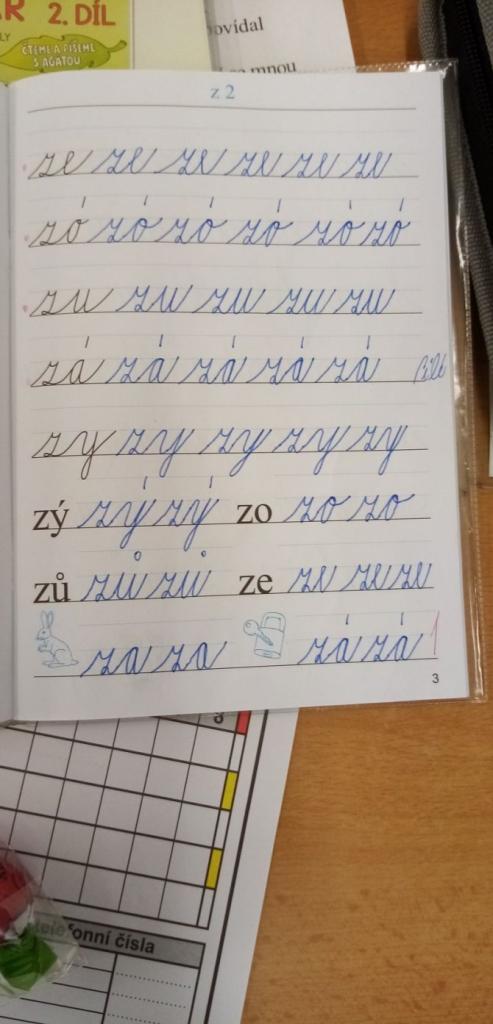 2. DÍL
ČTEME A PÍŠEME
S AGÁTOU
povídal
mnou
z 2
ze ze ze ze ze ze
zó zó zó zó zó zó
zu zu zu zu zu
zá zá zá zá zá
zy zy zy zy zy
zý zý zý zo zo zo
zů zů zů ze ze ze ze
za za zá zá 1
3
Telefonní čísla